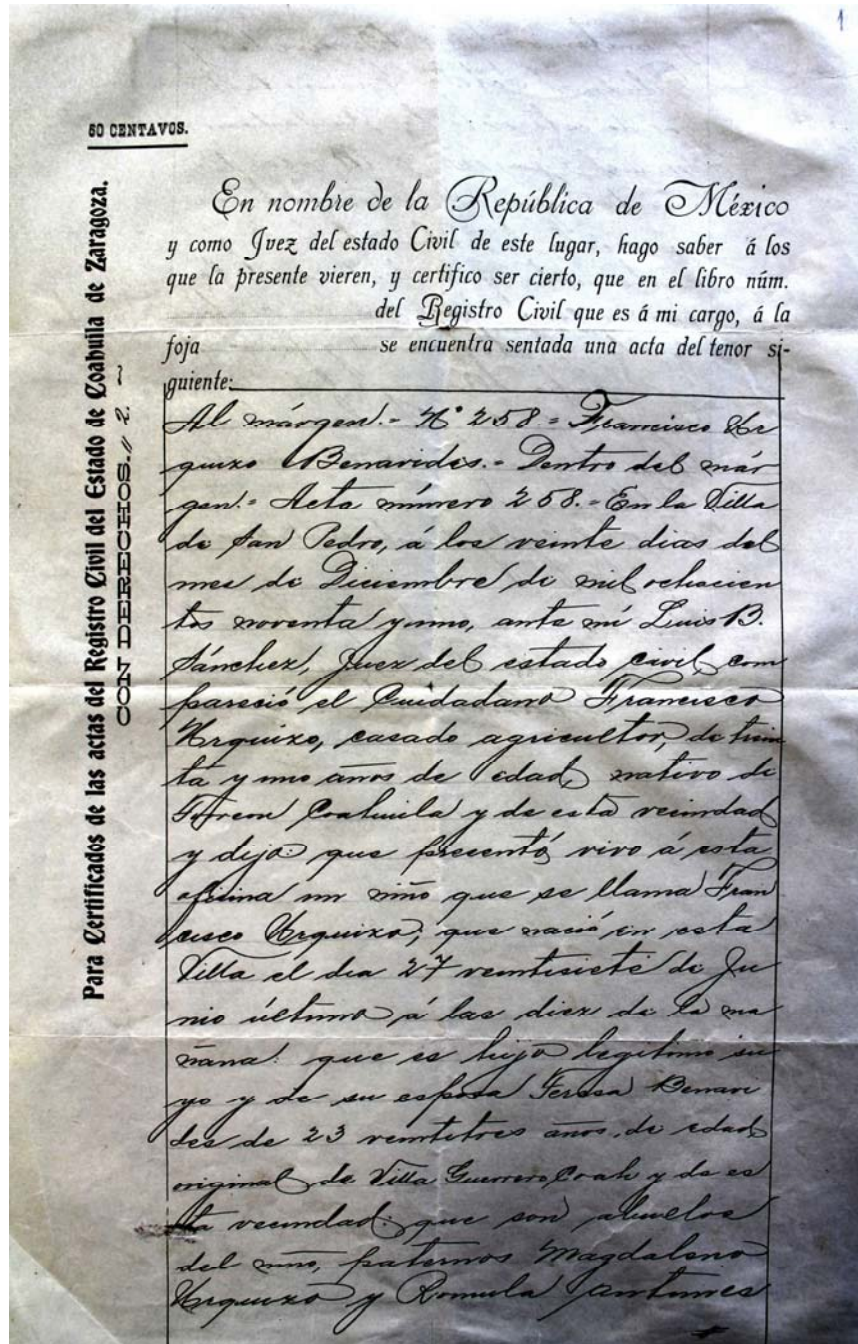 1
50 CENTAVOS.
Para Certificados de las actas del Registro Civil del Estado de Coahuila de Zaragoza.
CON DERECHOS. // 2. ~
En nombre de la República de México
y como Juez del estado Civil de este lugar, hago saber á los
que la presente vieren, y certifico ser cierto, que en el libro núm.
del Registro Civil que es á mi cargo, á la
foja se encuentra sentada una acta del tenor si-
guiente:
Al márgen.= N° 258.= Francisco Ur
quizo Benavides.= Dentro del már
gen.= Acta número 258.= En la Villa
de San Pedro, á los veinte dias del
mes de Diciembre de mil ochocien
tos noventa y uno, ante mí Luis B.
Sánchez, Juez del estado civil, com
pareció el Cuidadano Francisco
Urquizo, casado agricultor, de trein
ta y uno años de edad, nativo de
Torreon Coahuila y de esta vecindad
y dijo: que presentó vivo á esta
oficina un niño que se llama Fran
cisco Urquizo; que nació en esta
Villa el dia 27 veintisiete de Ju
nio último á las diez de la ma
ñana: que es hijo legitimo su
yo y de su esposa Teresa Benavi
des de 23 veintitres años, de edad,
original de Villa Guerrero Coah y de es
ta vecindad: que son abuelos
del niño, paternos Magdaleno
Urquizo y Romula Antunes